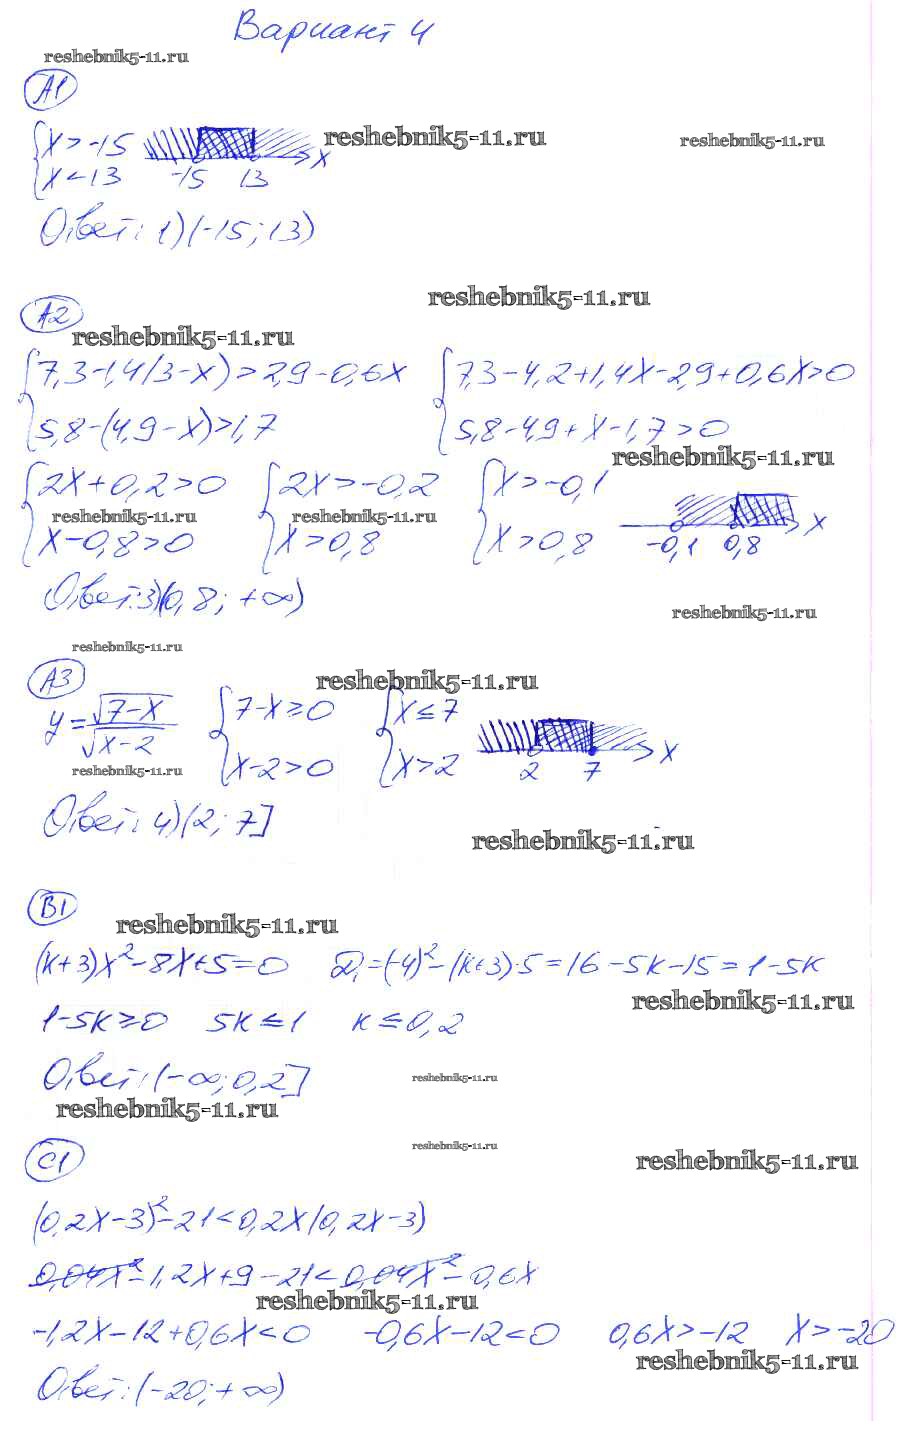 Вариант 4
reshebnik5-11.ru
А1
{x > -15
{x < 13
-15 13 x
reshebnik5-11.ru
reshebnik5-11.ru
Ответ: 1) (-15; 13)
reshebnik5-11.ru
А2
reshebnik5-11.ru
{7,3-1,4(3-x) > 2,9-0,6x
{5,8-(4,9-x) > 1,7
{7,3-4,2+1,4x-2,9+0,6x>0
{5,8-4,9+x-1,7>0
reshebnik5-11.ru
{2x+0,2>0
{x-0,8>0
{2x>-0,2
{x>0,8
{x>-0,1
{x>0,8
-0,1 0,8 x
reshebnik5-11.ru
reshebnik5-11.ru
Ответ: 3) (0,8; +∞)
reshebnik5-11.ru
reshebnik5-11.ru
А3
reshebnik5-11.ru
y = √(7-x) / √(x-2)
{7-x≥0
{x-2>0
{x≤7
{x>2
2 7 x
reshebnik5-11.ru
Ответ: 4) (2; 7]
reshebnik5-11.ru
В1
reshebnik5-11.ru
(k+3)x²-8x+5=0 D₁=(-4)²-(k+3)·5=16-5k-15=1-5k
reshebnik5-11.ru
1-5k≥0 5k≤1 k≤0,2
Ответ: (-∞; 0,2]
reshebnik5-11.ru
reshebnik5-11.ru
reshebnik5-11.ru
С1
reshebnik5-11.ru
(0,2x-3)²-21<0,2x(0,2x-3)
0,04x²-1,2x+9-21<0,04x²-0,6x
reshebnik5-11.ru
-1,2x-12+0,6x<0 -0,6x-12<0 0,6x>-12 x>-20
reshebnik5-11.ru
Ответ: (-20; +∞)